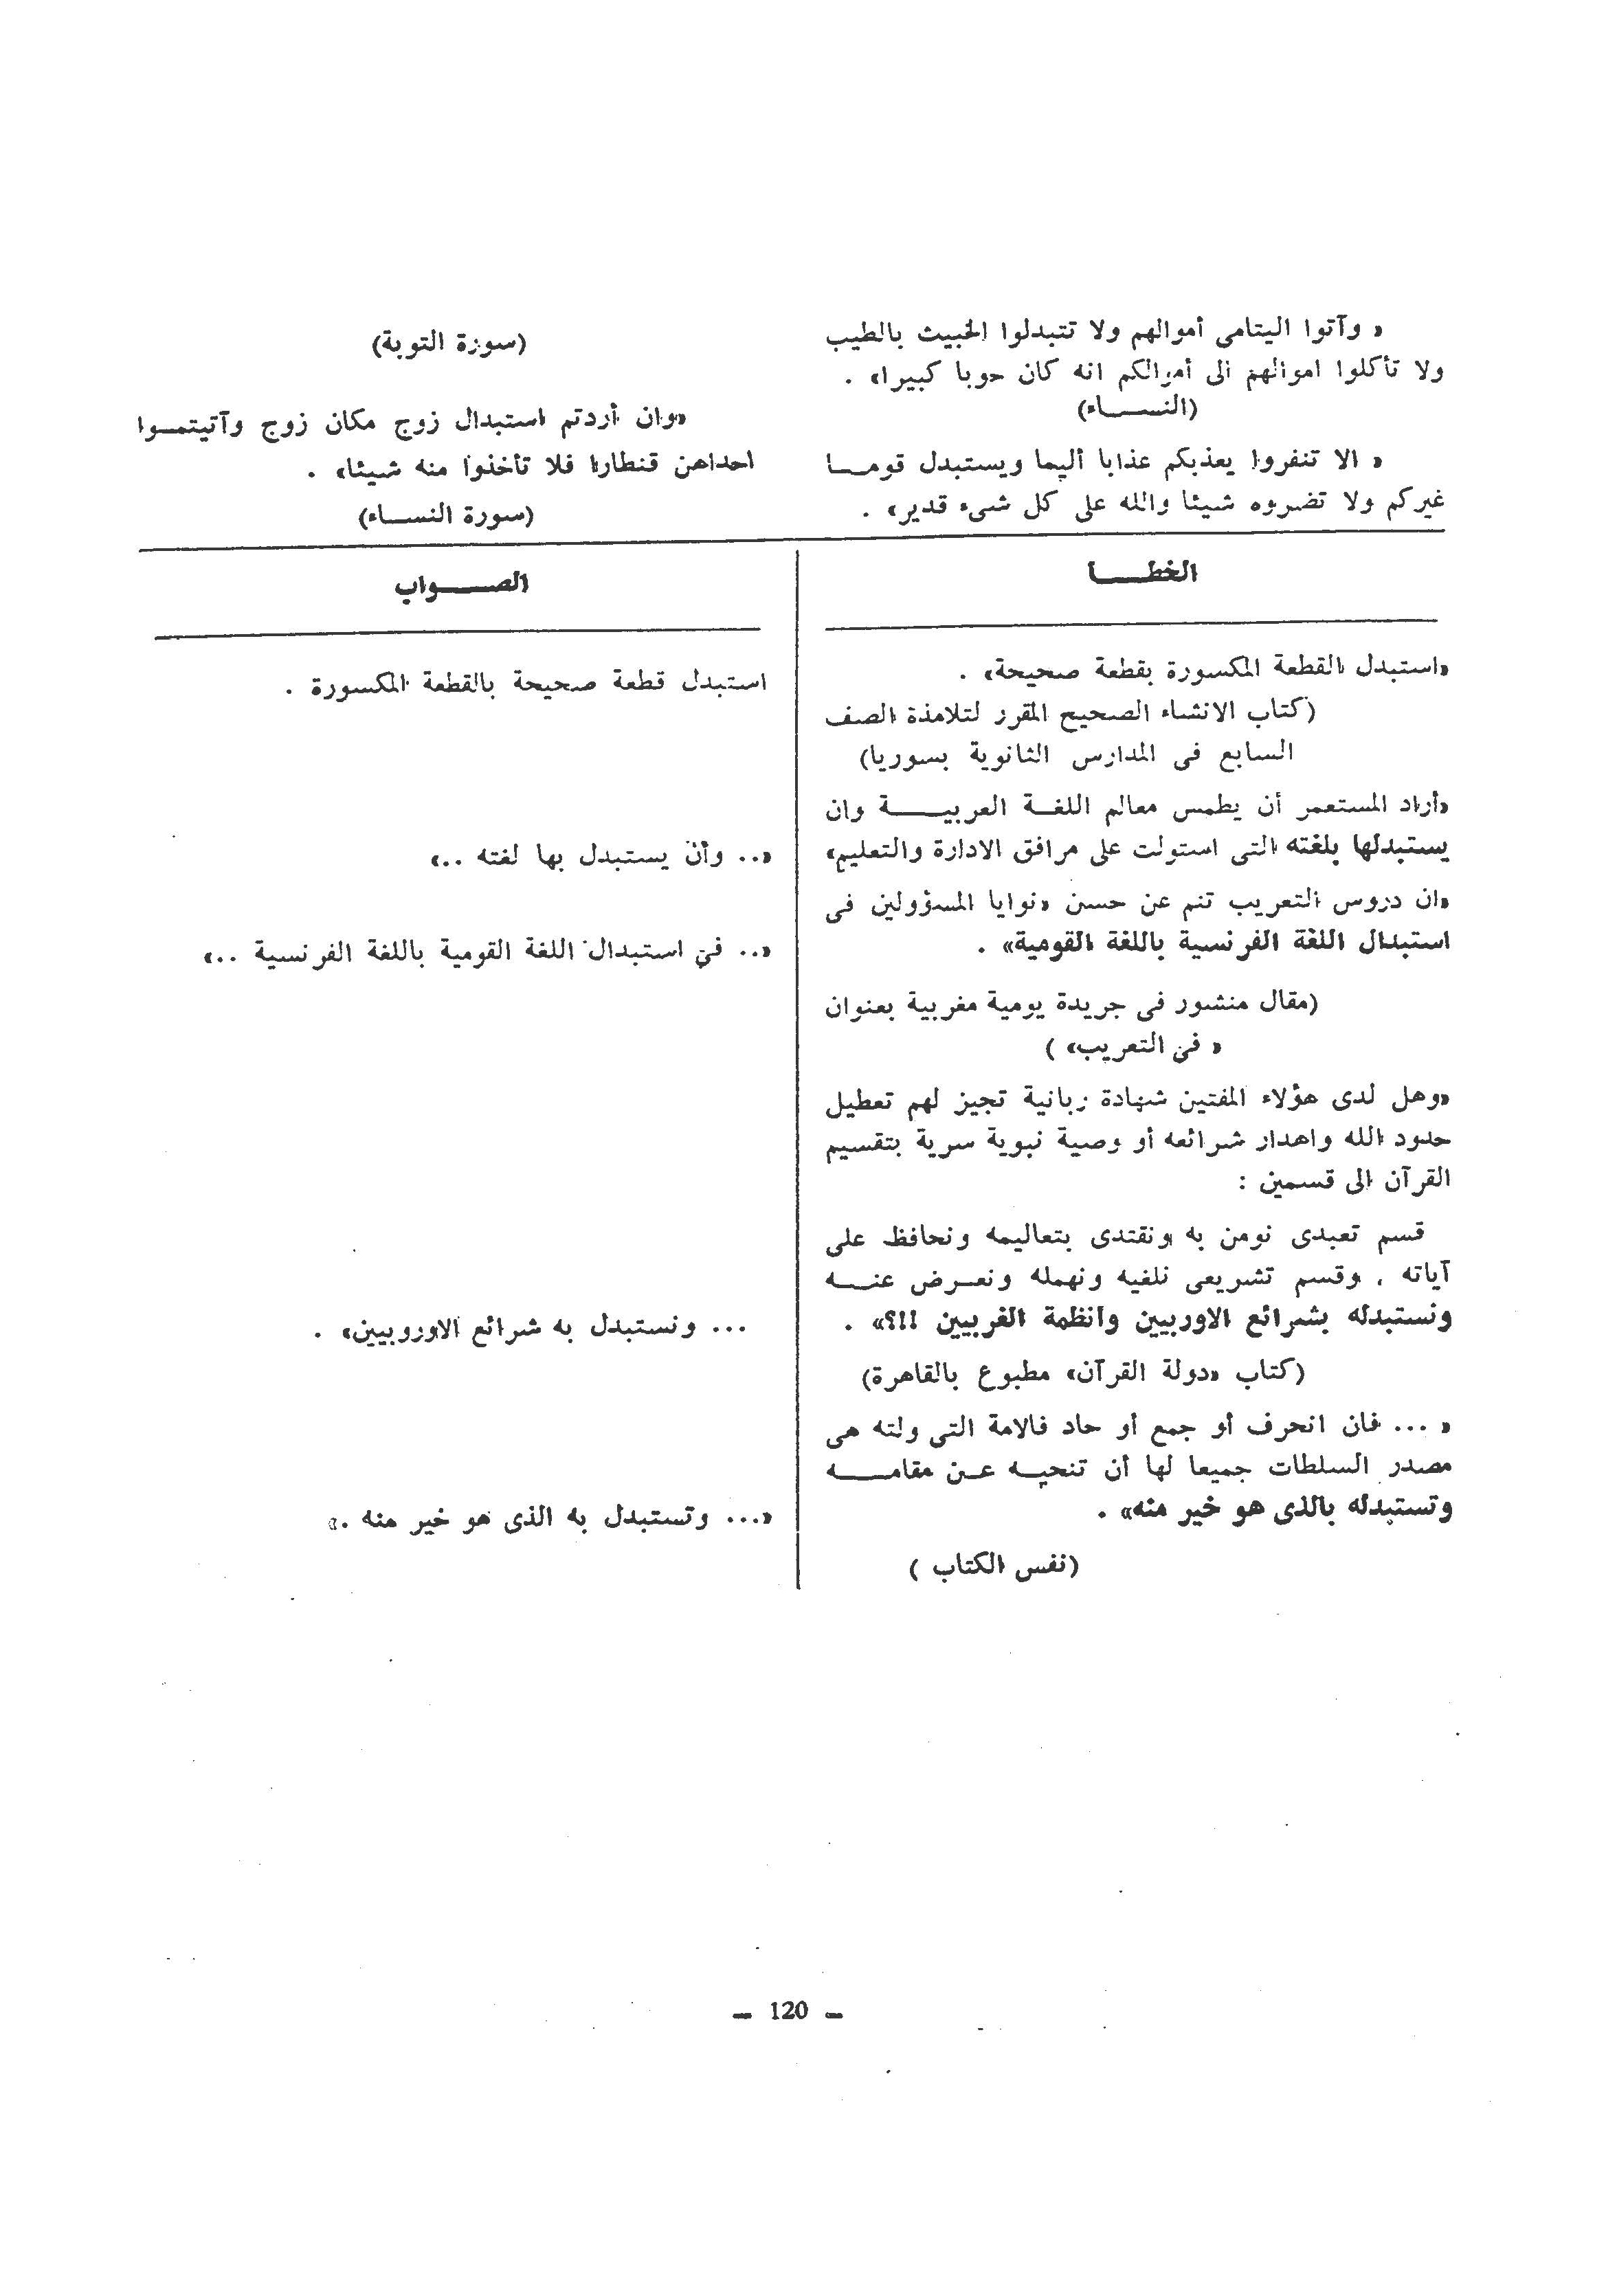 « وآتوا اليتامى أموالهم ولا تتبدلوا الخبيث بالطيب
ولا تأكلوا اموالهم الى أموالكم انه كان حوبا كبيرا» .
(النســـاء)
« الا تنفروا يعذبكم عذابا أليما ويستبدل قومــا
غيركم ولا تضروه شيئا والله على كل شىء قدير» .
(سورة التوبة)
«وان أردتم استبدال زوج مكان زوج وآتيتمــوا
احداهن قنطارا فلا تأخذوا منه شيئا» .
(سورة النســاء)
الخطـــأ
«استبدل القطعة المكسورة بقطعة صحيحة» .
(كتاب الانشاء الصحيح المقرر لتلامذة الصف
السابع فى المدارس الثانوية بسوريا)
«أراد المستعمر أن يطمس معالم اللغــة العربيــــة وان
يستبدلها بلغته التى استولت على مرافق الادارة والتعليم»
«ان دروس التعريب تنم عن حسن «نوايا المسؤولين فى
استبدال اللغة الفرنسية باللغة القومية» .
(مقال منشور فى جريدة يومية مغربية بعنوان
« فى التعريب» )
«وهل لدى هؤلاء المفتين شهادة ربانية تجيز لهم تعطيل
حدود الله واهدار شرائعه أو وصية نبوية سرية بتقسيم
القرآن الى قسمين :
قسم تعبدى نومن به ونقتدى بتعاليمه ونحافظ على
آياته ، وقسم تشريعى نلغيه ونهمله ونعــرض عنـــه
ونستبدله بشرائع الاوربيين وأنظمة الغربيين !!؟» .
(كتاب «دولة القرآن» مطبوع بالقاهرة)
« ... فان انحرف أو جمع أو حاد فالامة التى ولته هى
مصدر السلطات جميعا لها أن تنحيــه عــن مقامــــه
وتستبدله بالذى هو خير منه» .
(نفس الكتاب )
الصــــواب
استبدل قطعة صحيحة بالقطعة المكسورة .
«.. وأن يستبدل بها لغته ..»
«.. فى استبدال اللغة القومية باللغة الفرنسية ..»
... ونستبدل به شرائع الاوروبيين» .
«... وتستبدل به الذى هو خير منه .»
– 120 –